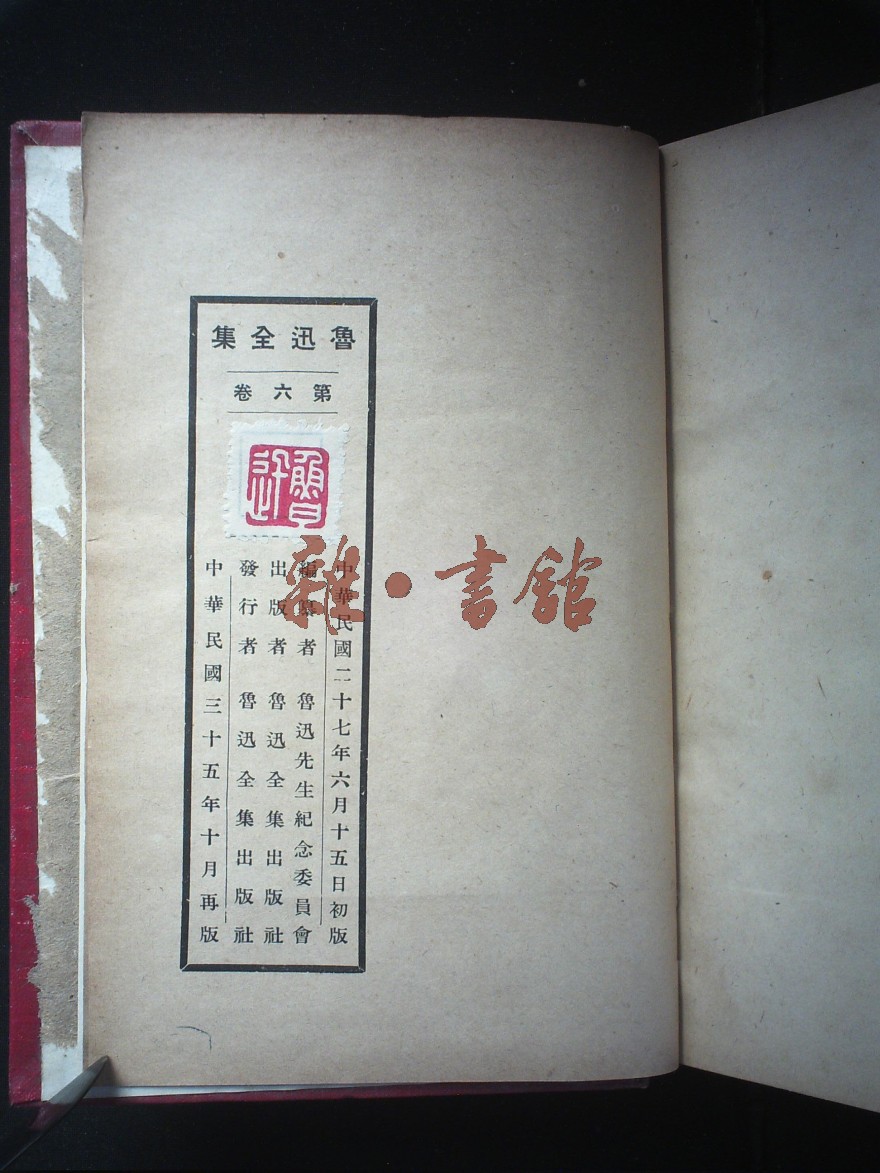 魯迅全集
第六卷
魯迅
中華民國二十七年六月十五日初版
編纂者 魯迅先生紀念委員會
出版者 魯迅全集出版社
發行者 魯迅全集出版社
中華民國三十五年十月再版
雜·書館